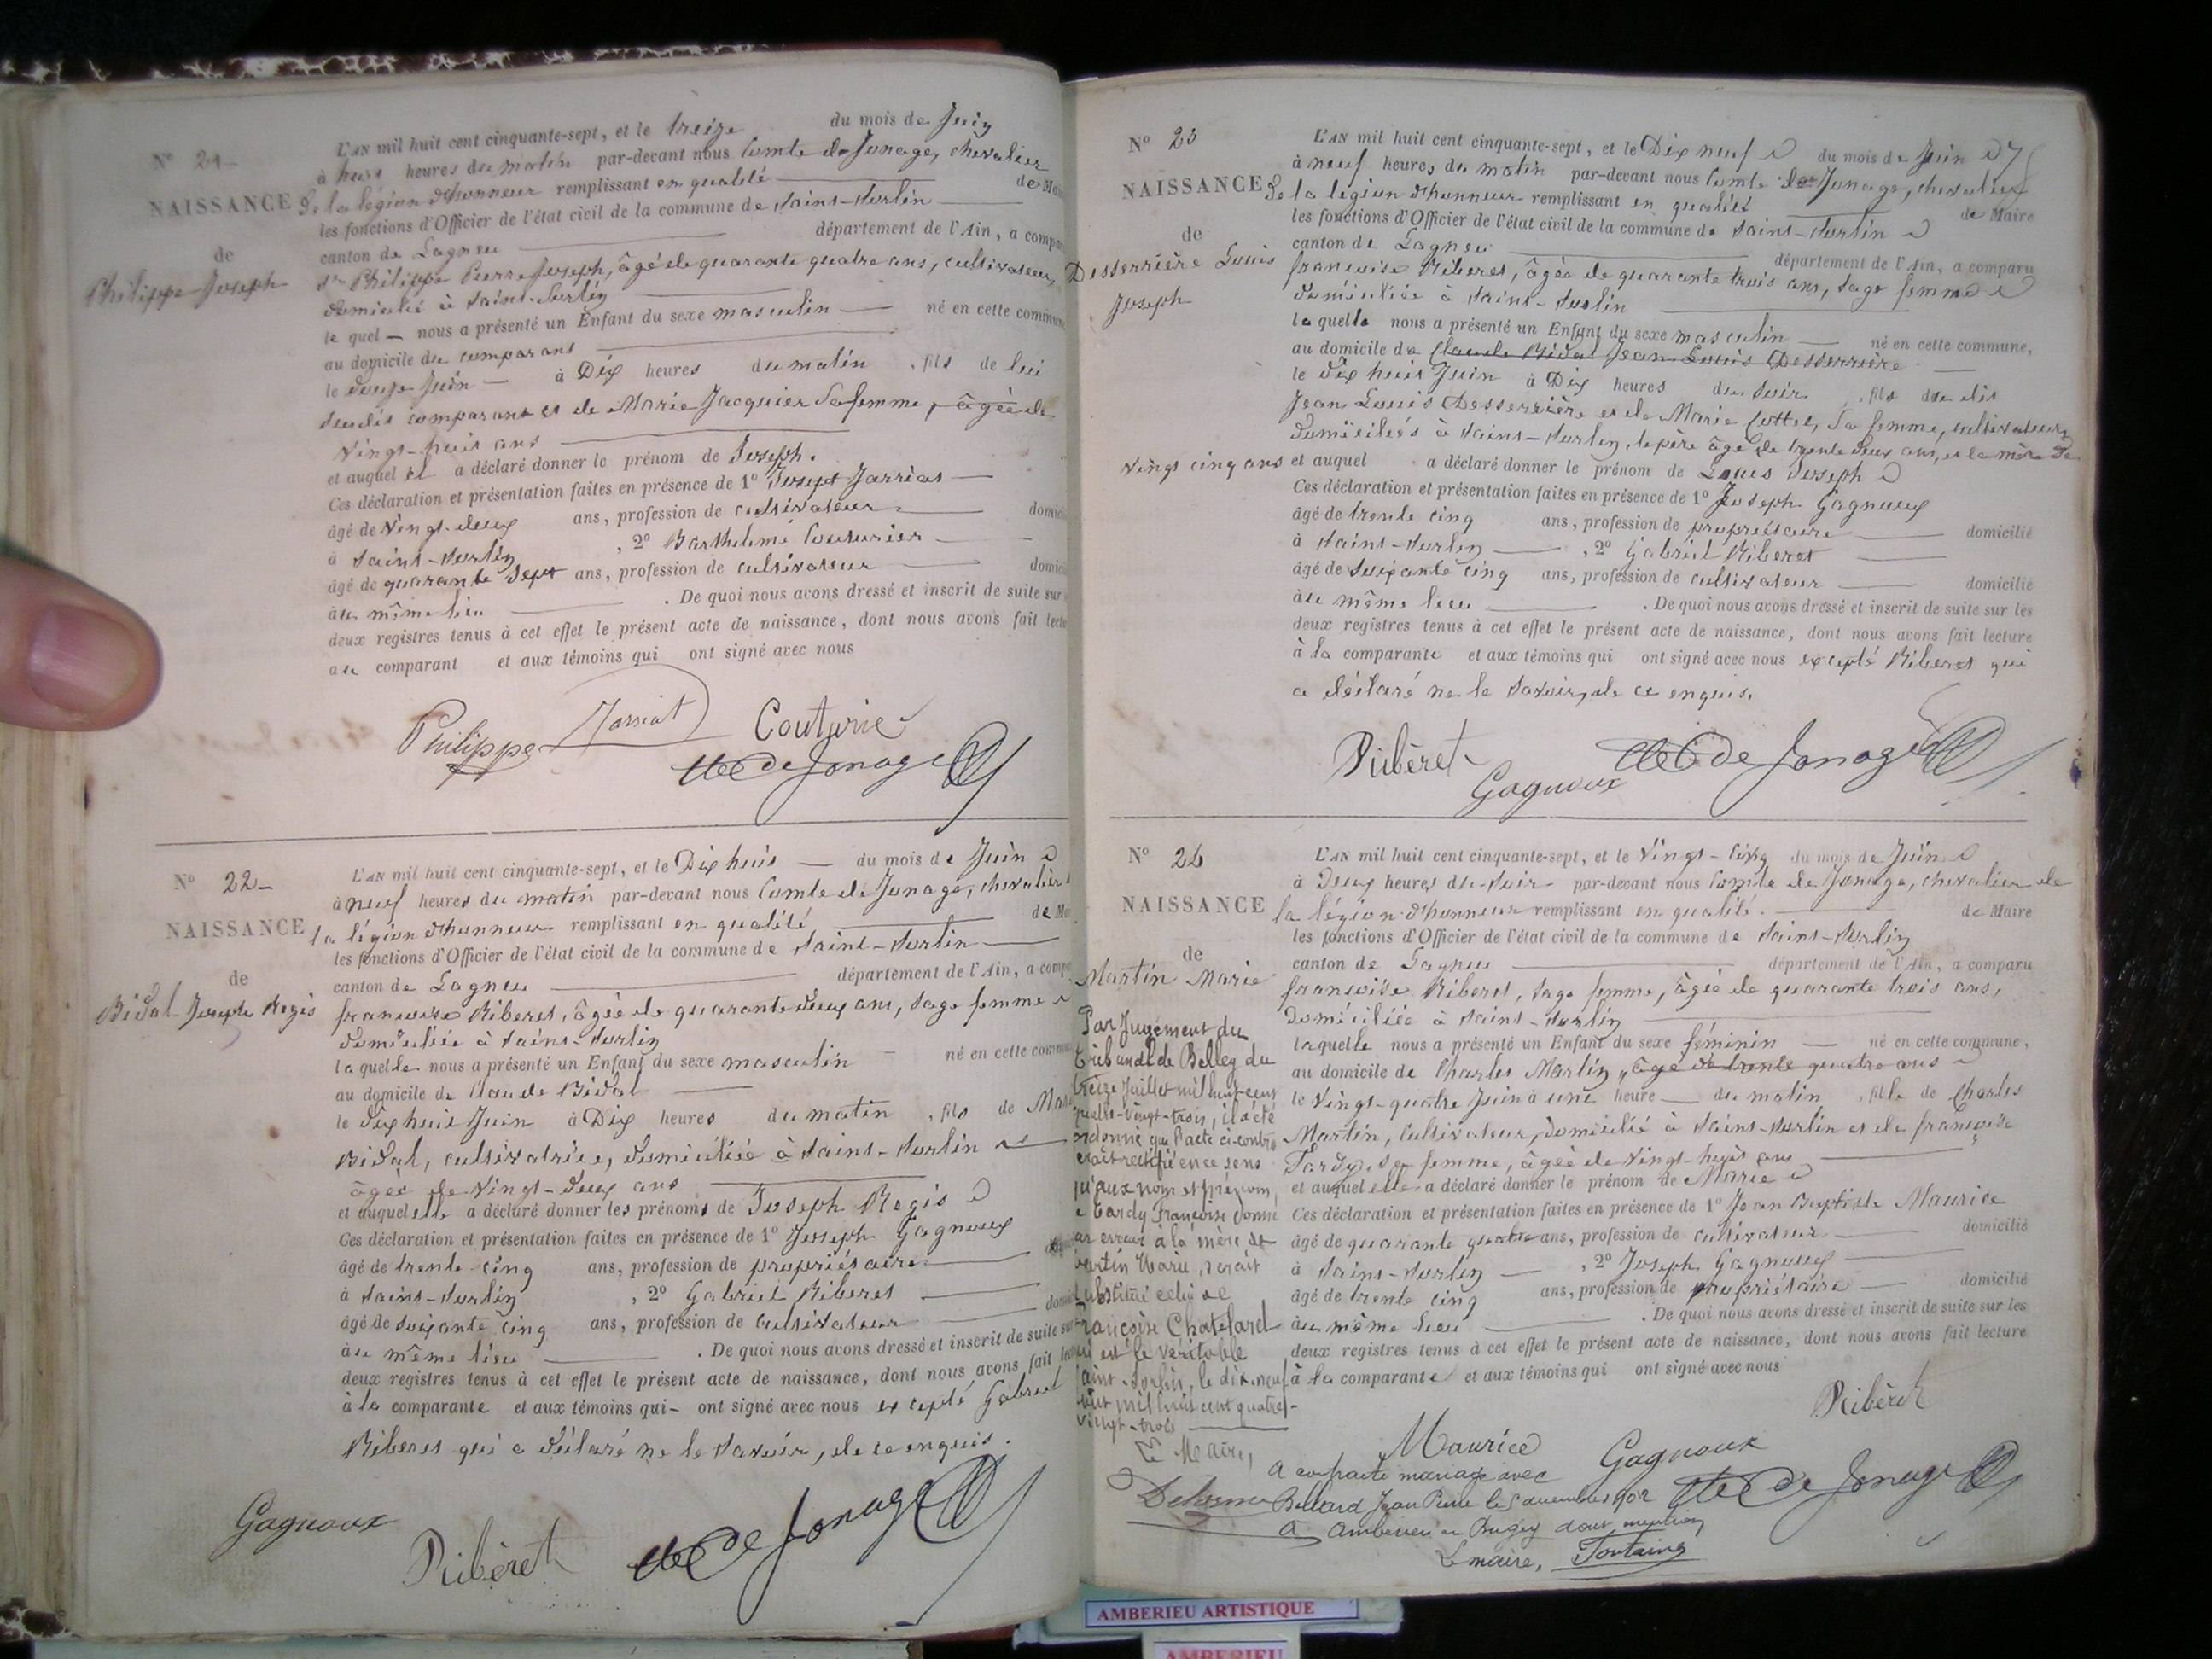 N° 21
NAISSANCE
de
Philippe Joseph
L'AN mil huit cent cinquante-sept, et le treize du mois de Juin
à huit heures du matin par-devant nous Comte de Jonage, chevalier
de la légion d'honneur remplissant en qualité de Mai
les fonctions d'Officier de l'état civil de la commune de Saint-Sorlin
canton de Lagneu département de l'Ain, a compa
Sr Philippe Pierre Joseph, âgé de quarante quatre ans, cultivateur,
domicilié à Saint-Sorlin
le quel nous a présenté un Enfant du sexe masculin né en cette commun
au domicile du comparant
le douze Juin à Dix heures du matin, fils de lui
susdit comparant et de Marie Jacquier sa femme, âgée de
vingt-huit ans
et auquel il a déclaré donner le prénom de Joseph.
Ces déclaration et présentation faites en présence de 1° Joseph Jarrias
âgé de vingt-deux ans, profession de cultivateur domici
à Saint-Sorlin, 2° Barthelimé Couturier
âgé de quarante sept ans, profession de cultivateur domici
au même lieu. De quoi nous avons dressé et inscrit de suite sur
deux registres tenus à cet effet le présent acte de naissance, dont nous avons fait lectu
au comparant et aux témoins qui ont signé avec nous
Philippe Jarriat Couturie
Cte de Jonage
N° 22
NAISSANCE
de
Bidal Joseph Regis
L'AN mil huit cent cinquante-sept, et le Dix huit du mois de Juin
à neuf heures du matin par-devant nous Comte de Jonage, chevalier
la légion d'honneur remplissant en qualité de Ma
les fonctions d'Officier de l'état civil de la commune de Saint-Sorlin
canton de Lagneu département de l'Ain, a compa
françoise Riberet, âgée de quarante deux ans, sage femme
domiciliée à Saint-Sorlin
laquelle nous a présenté un Enfant du sexe masculin né en cette commu
au domicile de Claude Bidal
le dix huit Juin à Dix heures du matin, fils de Mari
Bidal, cultivatrice, domiciliée à Saint-Sorlin
âgée de vingt-deux ans
et auquel elle a déclaré donner les prénoms de Joseph Regis
Ces déclaration et présentation faites en présence de 1° Joseph Gagneux
âgé de trente cinq ans, profession de propriétaire
à Saint-Sorlin, 2° Gabriel Riberet
âgé de soixante cinq ans, profession de cultivateur domici
au même lieu. De quoi nous avons dressé et inscrit de suite sur
deux registres tenus à cet effet le présent acte de naissance, dont nous avons fait le
à la comparante et aux témoins qui ont signé avec nous excepté Gabriel
Riberet qui a déclaré ne le savoir, de ce enquis.
Gagneux
Ribèret Cte de Jonage
N° 23
NAISSANCE
de
Desserrière Louis
Joseph
L'AN mil huit cent cinquante-sept, et le Dix neuf du mois de Juin
à neuf heures du matin par-devant nous Comte de Jonage, chevalier
de la légion d'honneur remplissant en qualité de Maire
les fonctions d'Officier de l'état civil de la commune de Saint-Sorlin
canton de Lagneu département de l'Ain, a comparu
françoise Riberet, âgée de quarante trois ans, sage femme
domiciliée à Saint-Sorlin
laquelle nous a présenté un Enfant du sexe masculin né en cette commune,
au domicile de Claude Bidal Jean Louis Desserrière
le dix huit Juin à Dix heures du soir, fils du dit
Jean Louis Desserrière et de Marie Cottet, sa femme, cultivateurs
domiciliés à Saint-Sorlin, le père âgé de trente deux ans, et la mère de
vingt cinq ans et auquel a déclaré donner le prénom de Louis Joseph
Ces déclaration et présentation faites en présence de 1° Joseph Gagneux
âgé de trente cinq ans, profession de propriétaire domicilié
à Saint-Sorlin, 2° Gabriel Riberet
âgé de soixante cinq ans, profession de cultivateur domicilié
au même lieu. De quoi nous avons dressé et inscrit de suite sur les
deux registres tenus à cet effet le présent acte de naissance, dont nous avons fait lecture
à la comparante et aux témoins qui ont signé avec nous excepté Riberet qui
a déclaré ne le savoir, de ce enquis.
Ribèret Cte de Jonage
Gagneux
N° 24
NAISSANCE
de
Martin Marie
L'AN mil huit cent cinquante-sept, et le vingt-cinq du mois de Juin
à Deux heures du soir par-devant nous Comte de Jonage, chevalier de
la légion d'honneur remplissant en qualité de Maire
les fonctions d'Officier de l'état civil de la commune de Saint-Sorlin
canton de Lagneu département de l'Ain, a comparu
françoise Riberet, sage femme, âgée de quarante trois ans,
domiciliée à Saint-Sorlin
laquelle nous a présenté un Enfant du sexe féminin né en cette commune,
au domicile de Charles Martin, âgé de trente quatre ans
le vingt-quatre Juin à une heure du matin, fille de Charles
Martin, cultivateur, domicilié à Saint-Sorlin et de françoise
Tardy, sa femme, âgée de vingt-huit ans
et auquel elle a déclaré donner le prénom de Marie
Ces déclaration et présentation faites en présence de 1° Jean Baptiste Maurice
âgé de quarante quatre ans, profession de cultivateur domicilié
à Saint-Sorlin, 2° Joseph Gagneux
âgé de trente cinq ans, profession de propriétaire domicilié
au même lieu. De quoi nous avons dressé et inscrit de suite sur les
deux registres tenus à cet effet le présent acte de naissance, dont nous avons fait lecture
à la comparante et aux témoins qui ont signé avec nous
Ribèret
Maurice Gagneux
Cte de Jonage
Par Jugement du
tribunal de Belley du
treize Juillet mil huit cent
quatre-vingt-trois, il a été
ordonné que l'acte ci-contre
serait rectifié en ce sens
qu'aux nom et prénom,
de Tardy Françoise donné
par erreur à la mère de
Martin Marie, serait
substitué celui de
Françoise Chatelard
qui est le véritable
Saint-Sorlin, le dix neuf
août mil huit cent quatre-
vingt-trois
Le Maire,
A contracté mariage avec
Jean Pierre le 5 novembre 1902
à Ambérieu en Bugey dont mention
Le maire, Fontaine
AMBERIEU ARTISTIQUE
AMBERIEU